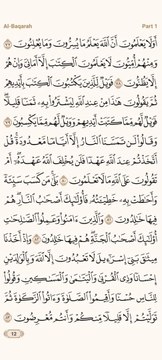 Al-Baqarah Part 1
أَوَلَا يَعْلَمُونَ أَنَّ ٱللَّهَ يَعْلَمُ مَا يُسِرُّونَ وَمَا يُعْلِنُونَ ٧٧
وَمِنْهُمْ أُمِّيُّونَ لَا يَعْلَمُونَ ٱلْكِتَٰبَ إِلَّآ أَمَانِيَّ وَإِنْ هُمْ
إِلَّا يَظُنُّونَ ٧٨ فَوَيْلٌ لِّلَّذِينَ يَكْتُبُونَ ٱلْكِتَٰبَ بِأَيْدِيهِمْ
ثُمَّ يَقُولُونَ هَٰذَا مِنْ عِندِ ٱللَّهِ لِيَشْتَرُوا۟ بِهِۦ ثَمَنًا قَلِيلًا
فَوَيْلٌ لَّهُم مِّمَّا كَتَبَتْ أَيْدِيهِمْ وَوَيْلٌ لَّهُم مِّمَّا يَكْسِبُونَ ٧٩
وَقَالُوا۟ لَن تَمَسَّنَا ٱلنَّارُ إِلَّآ أَيَّامًا مَّعْدُودَةً قُلْ
أَتَّخَذْتُمْ عِندَ ٱللَّهِ عَهْدًا فَلَن يُخْلِفَ ٱللَّهُ عَهْدَهُۥٓ أَمْ
تَقُولُونَ عَلَى ٱللَّهِ مَا لَا تَعْلَمُونَ ٨٠ بَلَىٰ مَن كَسَبَ سَيِّئَةً
وَأَحَٰطَتْ بِهِۦ خَطِيٓـَٔتُهُۥ فَأُو۟لَٰٓئِكَ أَصْحَٰبُ ٱلنَّارِ هُمْ
فِيهَا خَٰلِدُونَ ٨١ وَٱلَّذِينَ ءَامَنُوا۟ وَعَمِلُوا۟ ٱلصَّٰلِحَٰتِ
أُو۟لَٰٓئِكَ أَصْحَٰبُ ٱلْجَنَّةِ هُمْ فِيهَا خَٰلِدُونَ ٨٢ وَإِذْ أَخَذْنَا
مِيثَٰقَ بَنِىٓ إِسْرَٰٓءِيلَ لَا تَعْبُدُونَ إِلَّا ٱللَّهَ وَبِٱلْوَٰلِدَيْنِ
إِحْسَانًا وَذِى ٱلْقُرْبَىٰ وَٱلْيَتَٰمَىٰ وَٱلْمَسَٰكِينِ وَقُولُوا۟
لِلنَّاسِ حُسْنًا وَأَقِيمُوا۟ ٱلصَّلَوٰةَ وَءَاتُوا۟ ٱلزَّكَوٰةَ ثُمَّ
تَوَلَّيْتُمْ إِلَّا قَلِيلًا مِّنكُمْ وَأَنتُم مُّعْرِضُونَ ٨٣
12